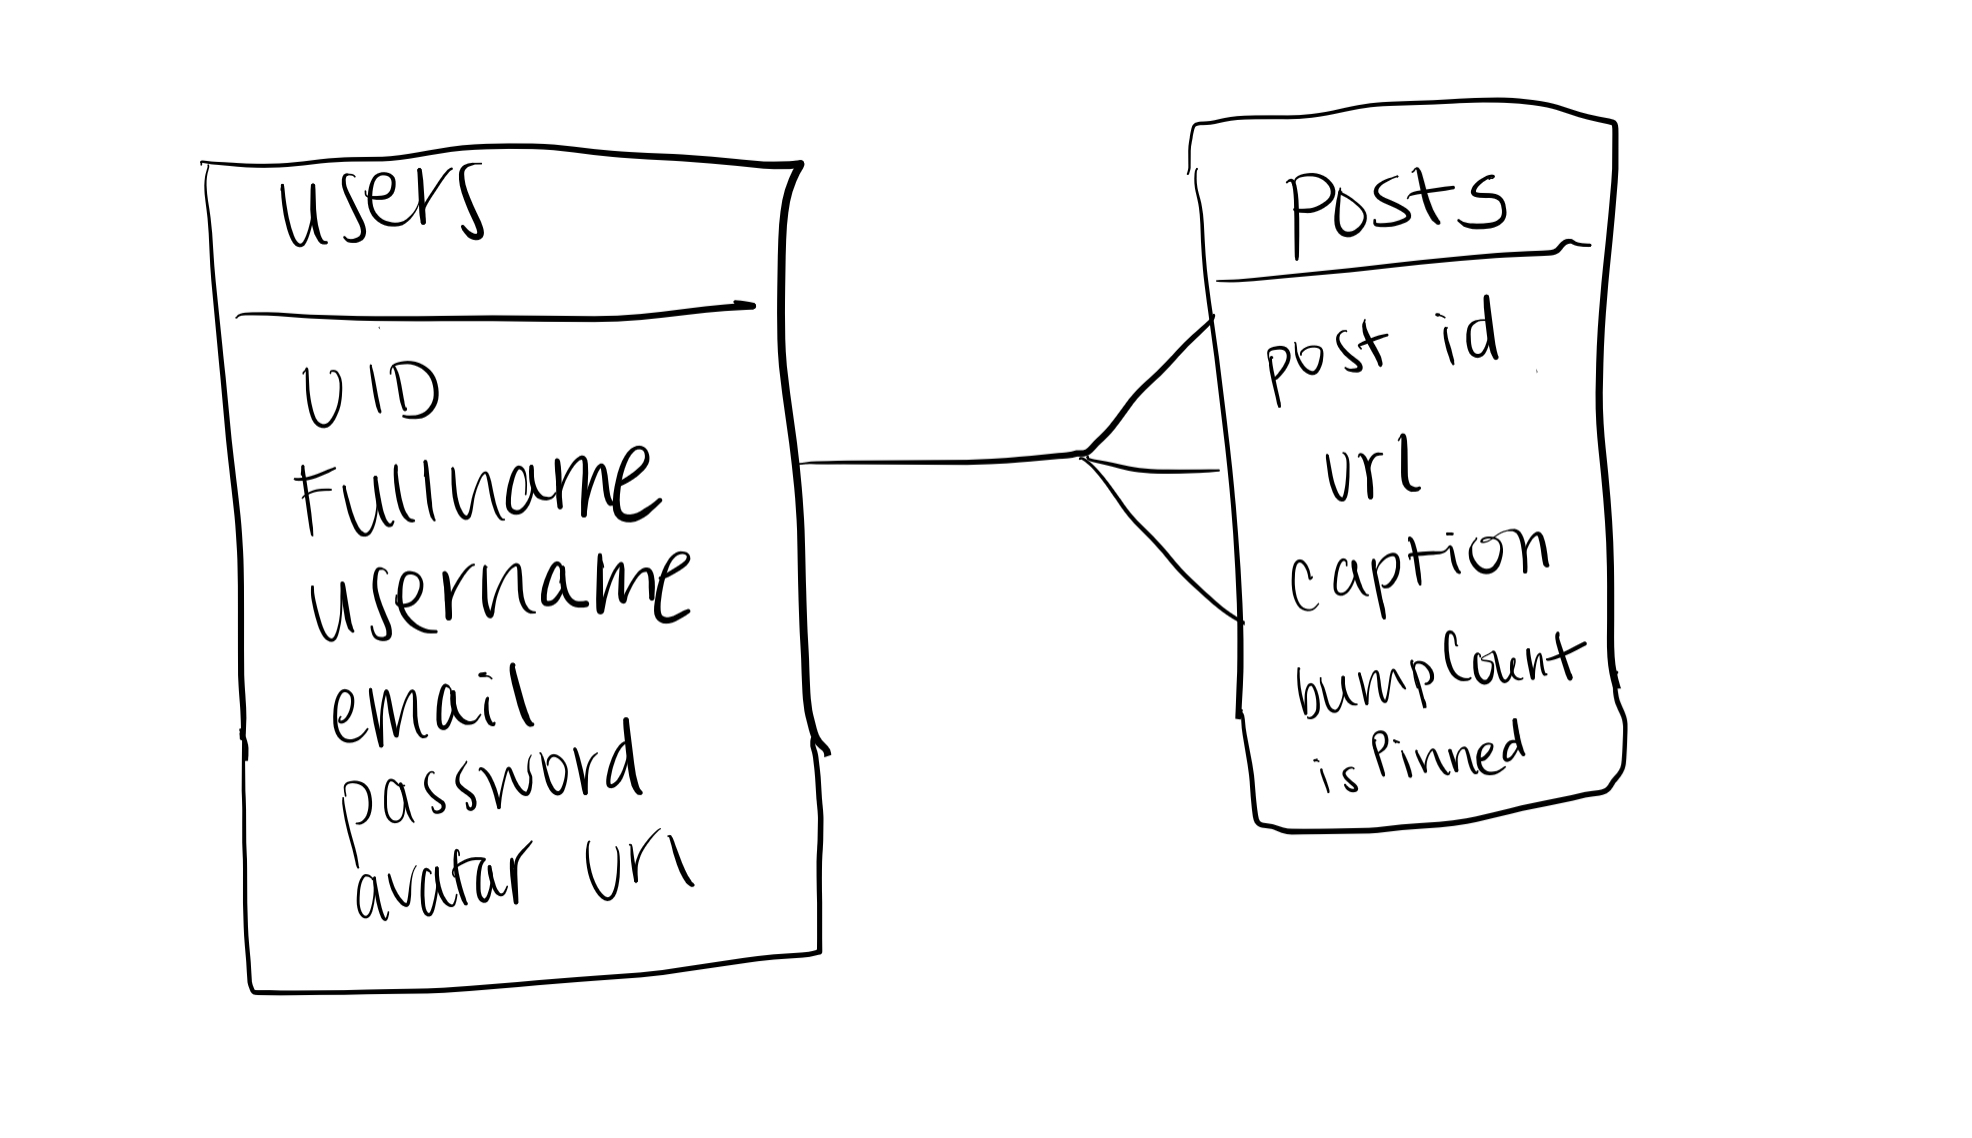 users
UID
Fullname
username
email
password
avatar url
Posts
post id
url
caption
bumpCount
isPinned